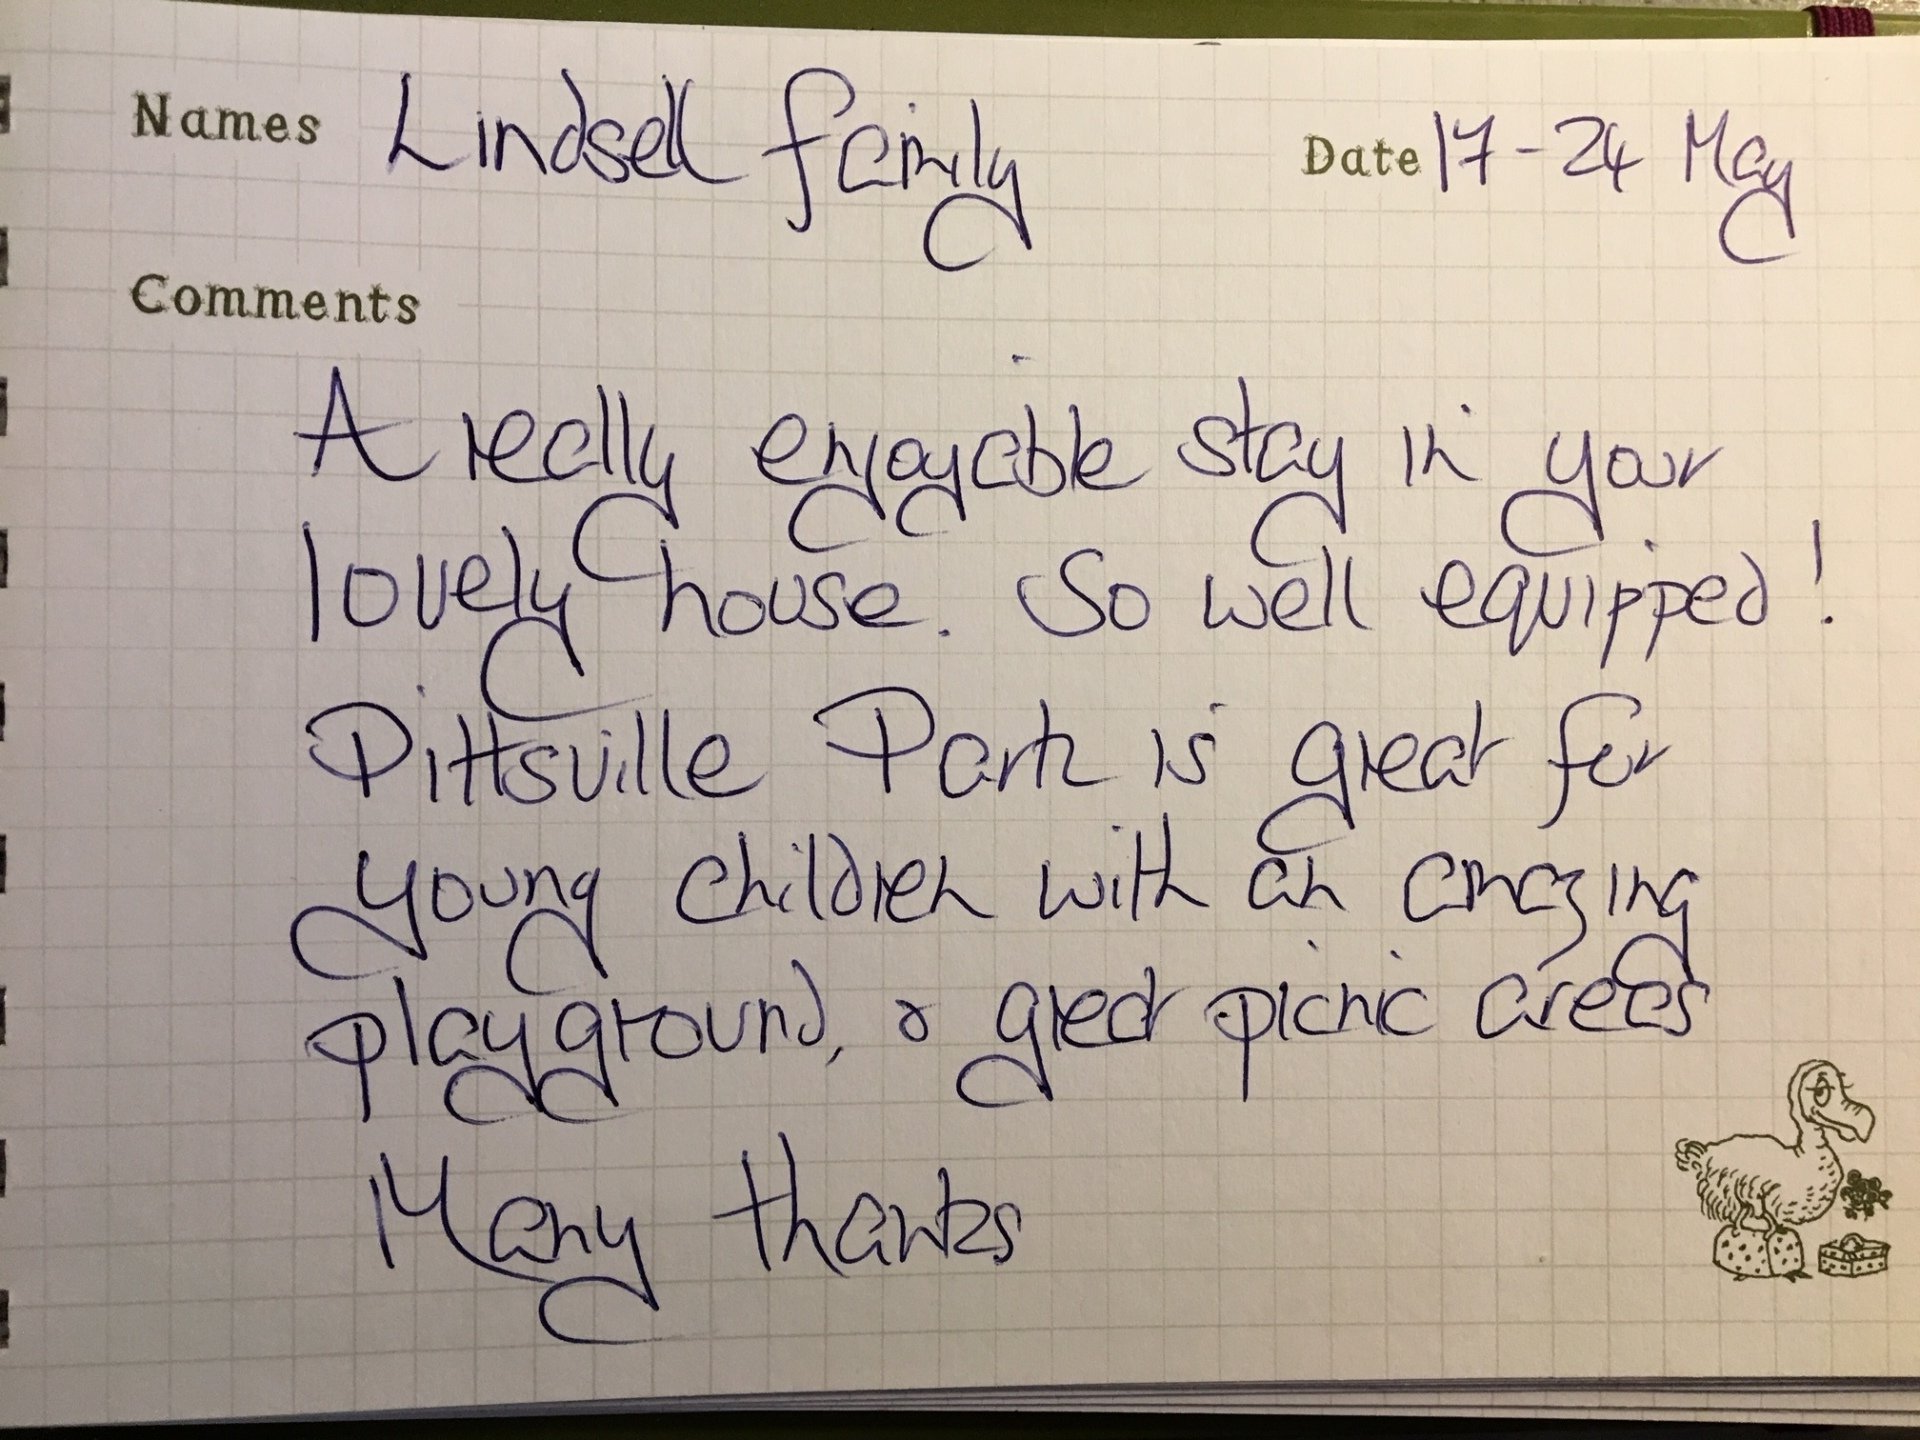 Names Lindsell family Date 17-24 May
Comments
A really enjoyable stay in your
lovely house. So well equipped!
Pittsville Park is great for
young children with an amazing
playground, & great picnic areas
Many thanks